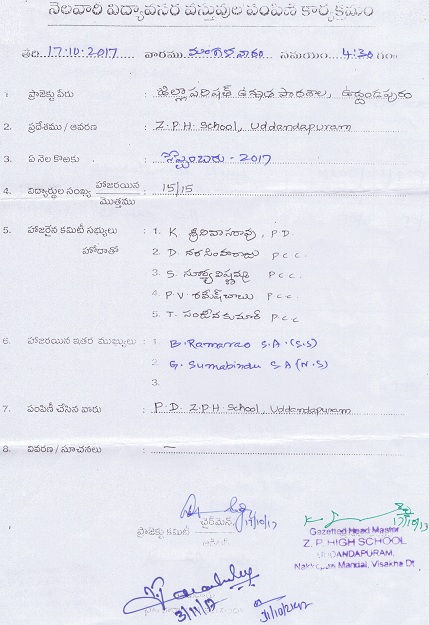 నెలవారీ విద్యావసర వస్తువుల పంపిణీ కార్యక్రమం
తేది 17.10.2017 వారము మంగళవారం సమయం 4:30 గం
1. ప్రాజెక్టు పేరు : జిల్లా పరిషత్ ఉన్నత పాఠశాల, ఉద్దండపురం
2. ప్రదేశము / ఆవరణ : Z.P.H. School, Uddandapuram
3. ఏ నెల కొఱకు : సెప్టెంబరు - 2017
4. విద్యార్థుల సంఖ్య హాజరయిన : 15/15
మొత్తము
5. హాజరైన కమిటీ సభ్యులు : 1. K. శ్రీనివాసరావు, P.D.
హోదాతో 2. D. నరసింహరాజు P.C.C.
3. S. P.C.C.
4. P.V P.C.C.
5. T. సంజీవకుమార్ P.C.C
6. హాజరయిన ఇతర ముఖ్యులు : 1. B. Ramarao S.A.(S.S)
2. G. Sumabindu S.A (N.S)
3.
7. పంపిణీ చేసిన వారు : P.D. Z.P.H School, Uddandapuram
8. వివరణ / సూచనలు : –
ఛైర్మెన్, 17/10/17
ప్రాజెక్టు కమిటీ
17/10/13
Gazetted Head Master
Z. P. HIGH SCHOOL
DANDAPURAM,
Mandal, Visakha Dt
3/11/17
31/10/2017